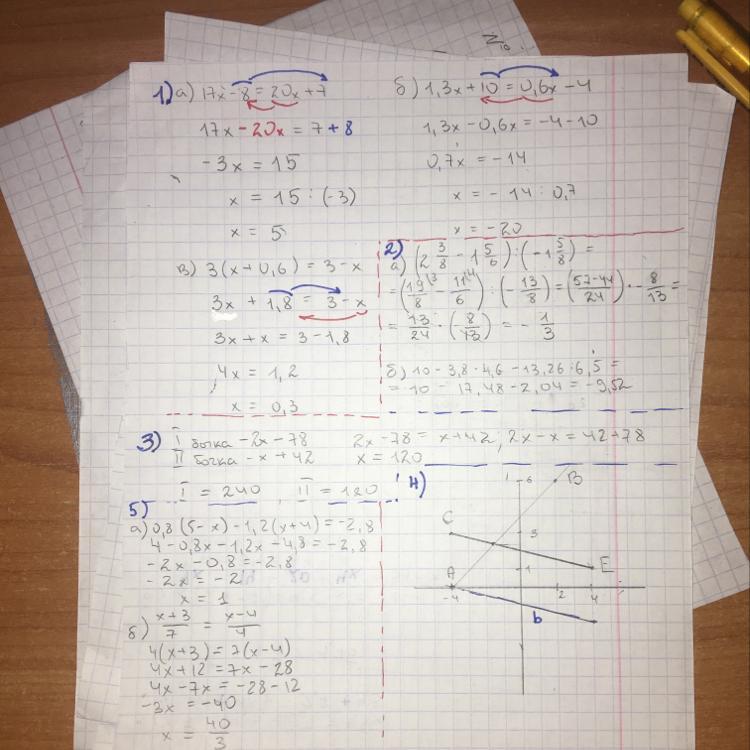 1) а) 17x - 8 = 20x + 7
17x - 20x = 7 + 8
-3x = 15
x = 15 : (-3)
x = 5
б) 1,3x + 10 = 0,6x - 4
1,3x - 0,6x = -4 - 10
0,7x = -14
x = -14 : 0,7
x = -20
в) 3(x + 0,6) = 3 - x
3x + 1,8 = 3 - x
3x + x = 3 - 1,8
4x = 1,2
x = 0,3
2)
а) (2 3/8 - 1 5/6) : (-1 5/8) =
= (19/8 - 11/6) : (-13/8) = (57-44/24) · -8/13 =
= 13/24 · (-8/13) = -1/3
б) 10 - 3,8 · 4,6 - 13,26 : 6,5 =
= 10 - 17,48 - 2,04 = -9,52
3) I бочка - 2x - 78 2x - 78 = x + 42; 2x - x = 42 + 78
II бочка - x + 42 x = 120
I = 240, II = 120
4)
6 B
C 3
1 E
A
-4 2 4
b
5)
а) 0,8(5 - x) - 1,2(x + 4) = -2,8
4 - 0,8x - 1,2x - 4,8 = -2,8
-2x - 0,8 = -2,8
-2x = -2
x = 1
б) x+3/7 = x-4/4
4(x + 3) = 7(x - 4)
4x + 12 = 7x - 28
4x - 7x = -28 - 12
-3x = -40
x = 40/3